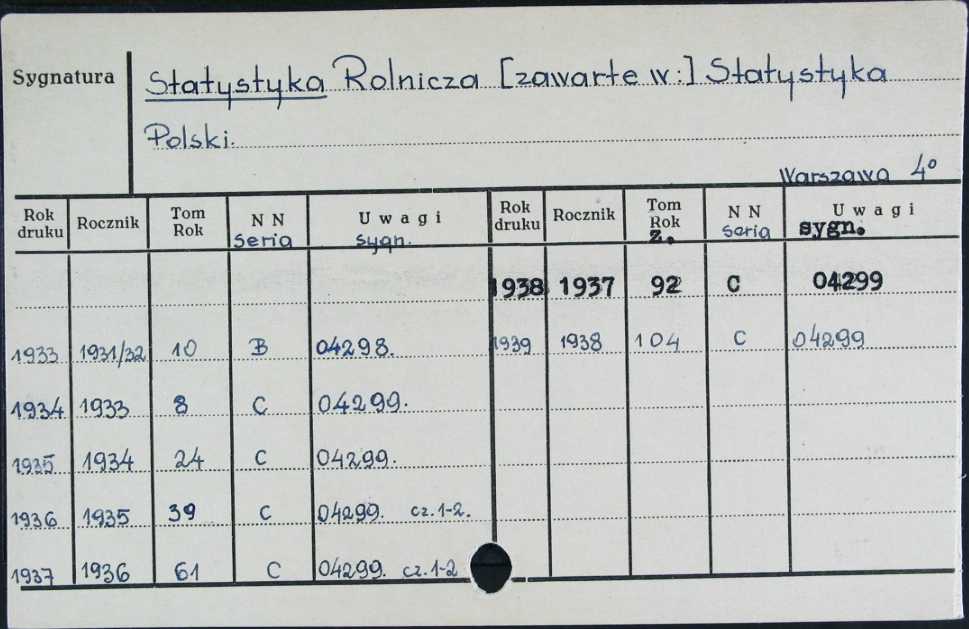 Sygnatura Statystyka Rolnicza [zawarte w:] Statystyka
Polski.
Warszawa 4°
Rok druku Rocznik Tom Rok N N seria Uwagi sygn. Rok druku Rocznik Tom Rok z. N N seria Uwagi sygn.
1938 1937 92 C 04299
1933 1931/32 10 B 04298. 1939 1938 104 C 04299
1934 1933 8 C 04299.
1935 1934 24 C 04299.
1936 1935 39 C 04299. cz. 1-2.
1937 1936 61 C 04299. cz. 1-2